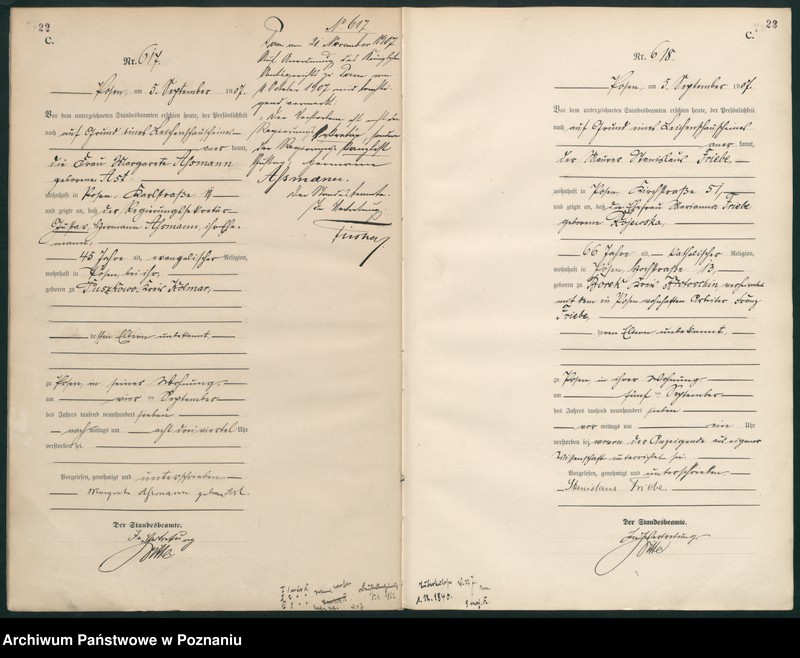 22
C.
Nr. 617.
Posen, am 5. September 1907.
Vor dem unterzeichneten Standesbeamten erschien heute, der Persönlichkeit
nach auf Grund eines Leichenschauscheines
kannt,
die Frau Margarete Aßmann
geborene Ast
wohnhaft in Posen, Karlstraße
und zeigte an, daß der Regierungssekretär
Gustav Hermann Aßmann, ihr Ehe-
mann,
45 Jahre alt, evangelischer Religion,
wohnhaft in Posen, bei ihr,
geboren zu Kreis Kolmar,
dessen Eltern unbekannt,
zu Posen, in seiner Wohnung
am vier ten September
des Jahres tausend neunhundert sieben
nach mittags um acht dreiviertel Uhr
verstorben sei.
Vorgelesen, genehmigt und unterschrieben
Margarete Assmann geborene Ast.
Der Standesbeamte.
In Vertretung
No 617
Posen am 21. November 1907
Auf Anordnung des Königlichen
Amtsgerichts zu Posen vom
Oktober 1907 wird berichti-
gend vermerkt:
Der Verstorbene ist nicht der
Regierungssekretär, sondern
der Regierungs Kanzlist
Gustav Hermann
Aßmann.
Der Standesbeamte.
In Vertretung
23
C.
Nr. 618.
Posen, am 5. September 1907.
Vor dem unterzeichneten Standesbeamten erschien heute, der Persönlichkeit
nach auf Grund eines Leichenschauscheines
kannt,
der Maurer Stanislaus Friebe,
wohnhaft in Posen, Kirchstraße 51,
und zeigte an, daß die Ehefrau Marianna Friebe
geborene
66 Jahre alt, katholischer Religion,
wohnhaft in Posen,
geboren zu Borek Kreis Krotoschin verheiratet
mit dem in Posen wohnhaften Arbeiter Franz
Friebe,
deren Eltern unbekannt,
zu Posen, in ihrer Wohnung
am fünf ten September
des Jahres tausend neunhundert sieben
vor mittags um ein Uhr
verstorben sei, wovon der Anzeigende aus eigener
Wissenschaft unterrichtet sei.
Vorgelesen, genehmigt und unterschrieben
Stanislaus Friebe.
Der Standesbeamte.
In Vertretung
Archiwum Państwowe w Poznaniu